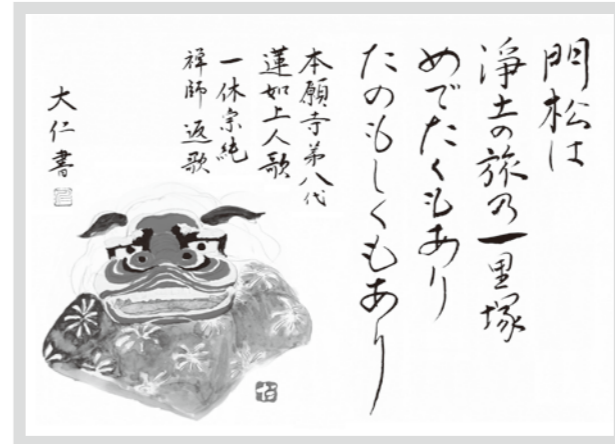 門松は
浄土の旅の一里塚
めでたくもあり
たのもしくもあり
本願寺第八代
蓮如上人歌
一休宗純
禅師 返歌
大仁書